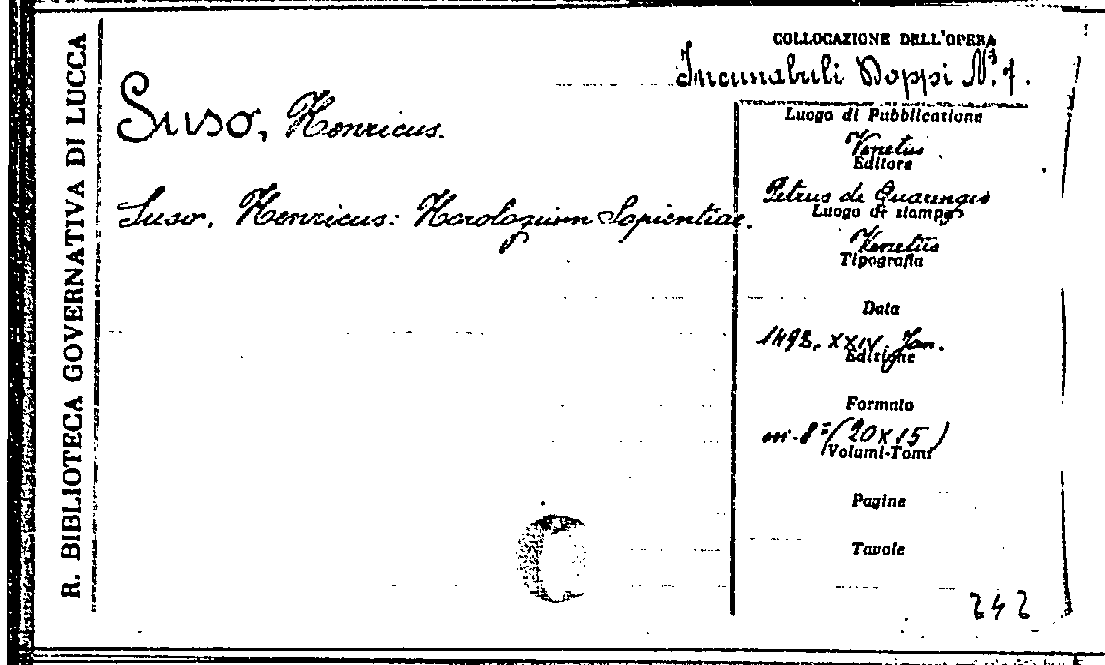 R. BIBLIOTECA GOVERNATIVA DI LUCCA
COLLOCAZIONE DELL'OPERA
Incunabuli Doppi N.º 1.
Suso, Henricus.
Suso, Henricus: Horologium Sapientiae.
Luogo di Pubblicazione
Venetiis
Editore
Petrus de Quarengis
Luogo di stampa
Venetiis
Tipografia
Data
1492. XXIV. Jan.
Edizione
Formato
in-8º (20x15)
Volumi-Tomi
Pagine
Tavole
242